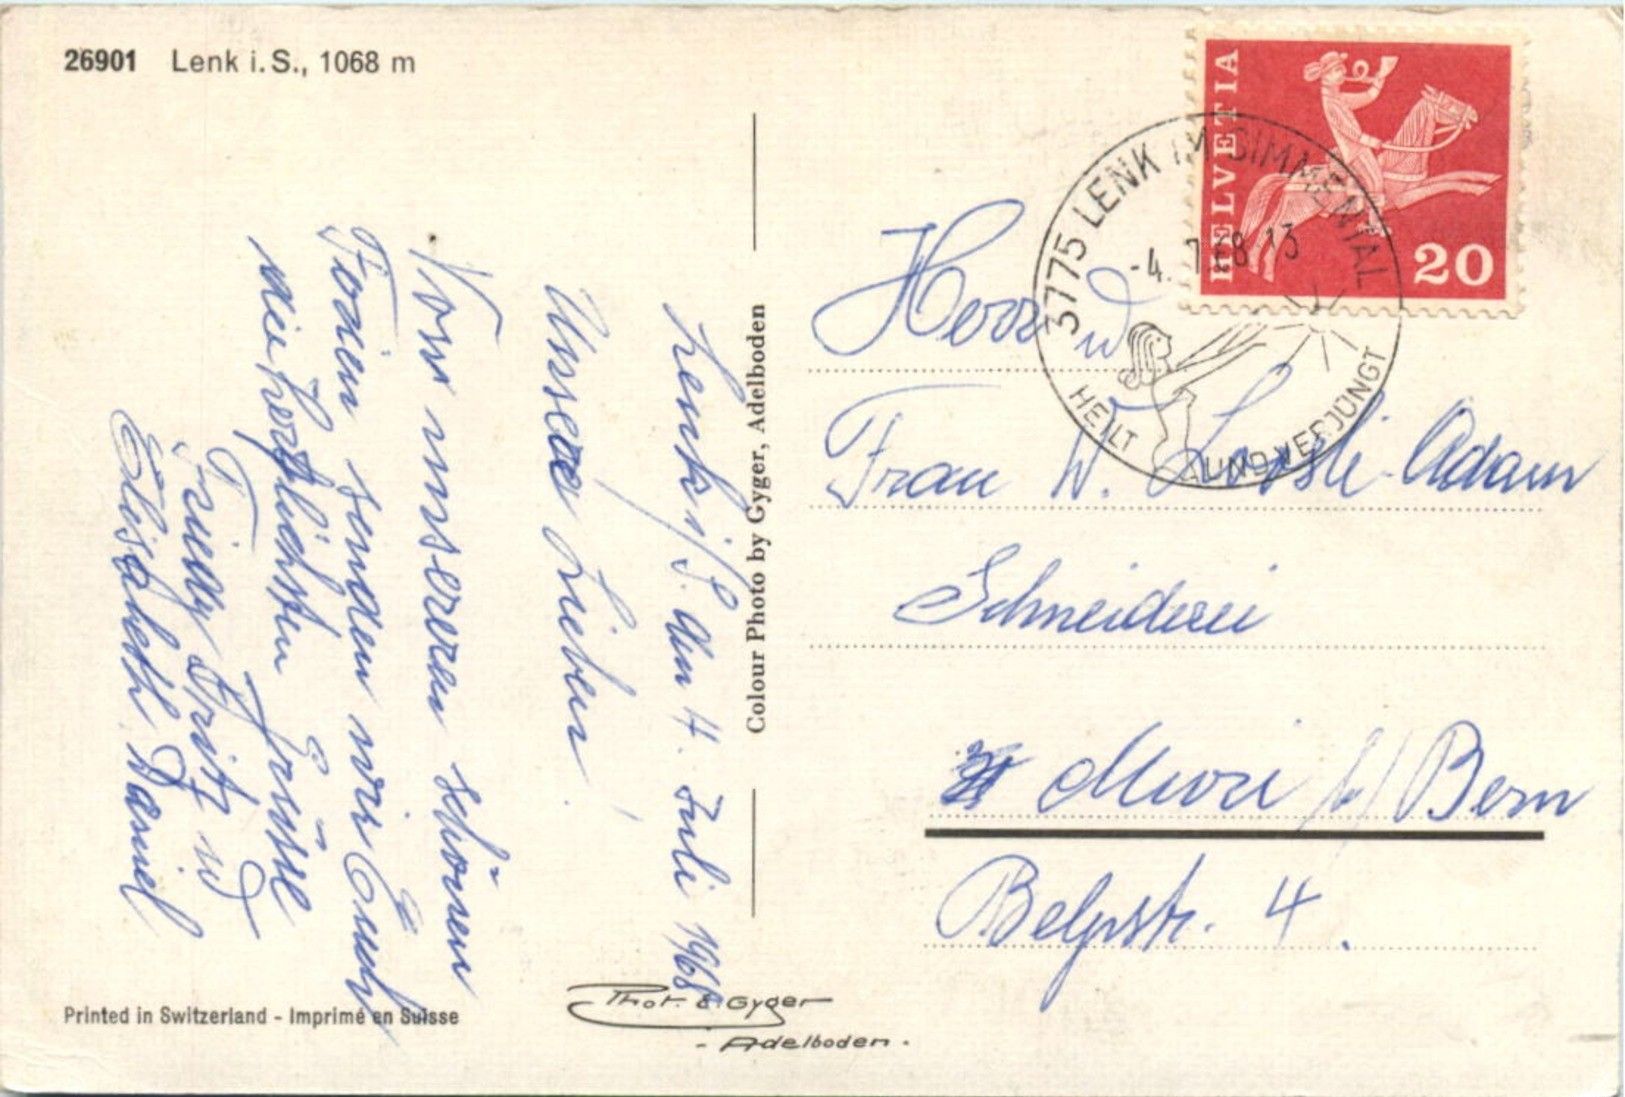 26901 Lenk i. S., 1068 m
Lenk i/S. den 4. Juli 1968
Unsere Lieben!
Von unseren schönen
Ferien senden wir Euch
die herzlichsten Grüsse
Fritz ud
Elisabeth. Daniel
Printed in Switzerland - Imprimé en Suisse
Colour Photo by Gyger, Adelboden
Phot. E. Gyger
- Adelboden -
HELVETIA
20
3775 LENK IM SIMMENTAL
-4. 7.68 13
HEILT UND VERJÜNGT
Herr ud
Frau W. -Adam
Schneiderei
Muri b/ Bern
Belpstr. 4.